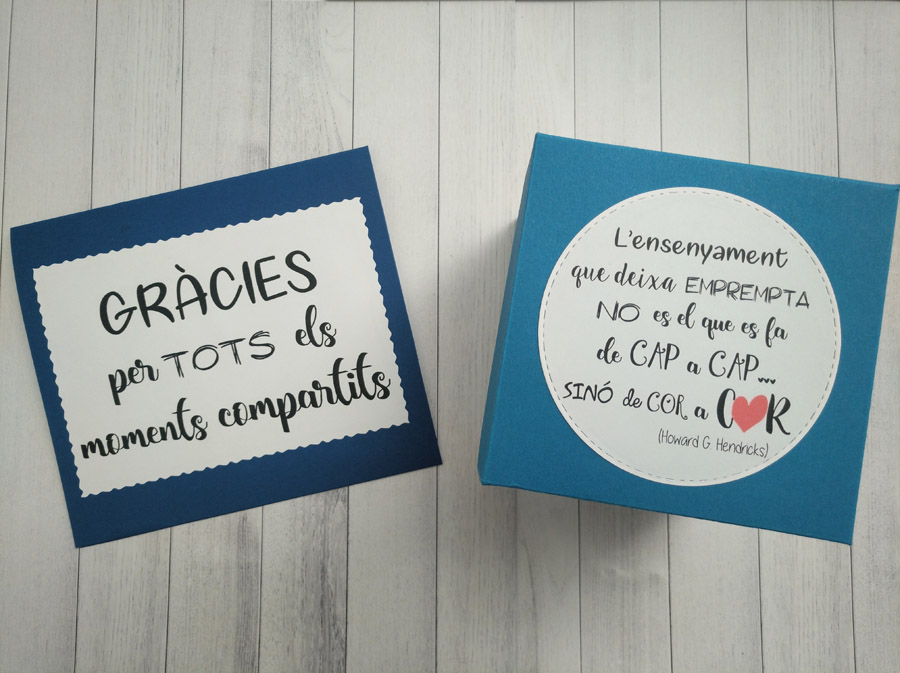 GRÀCIES
per TOTS els
moments compartits
L'ensenyament
que deixa EMPREMPTA
NO es el que es fa
de CAP a CAP...
SINÓ de COR a COR
(Howard G. Hendricks)